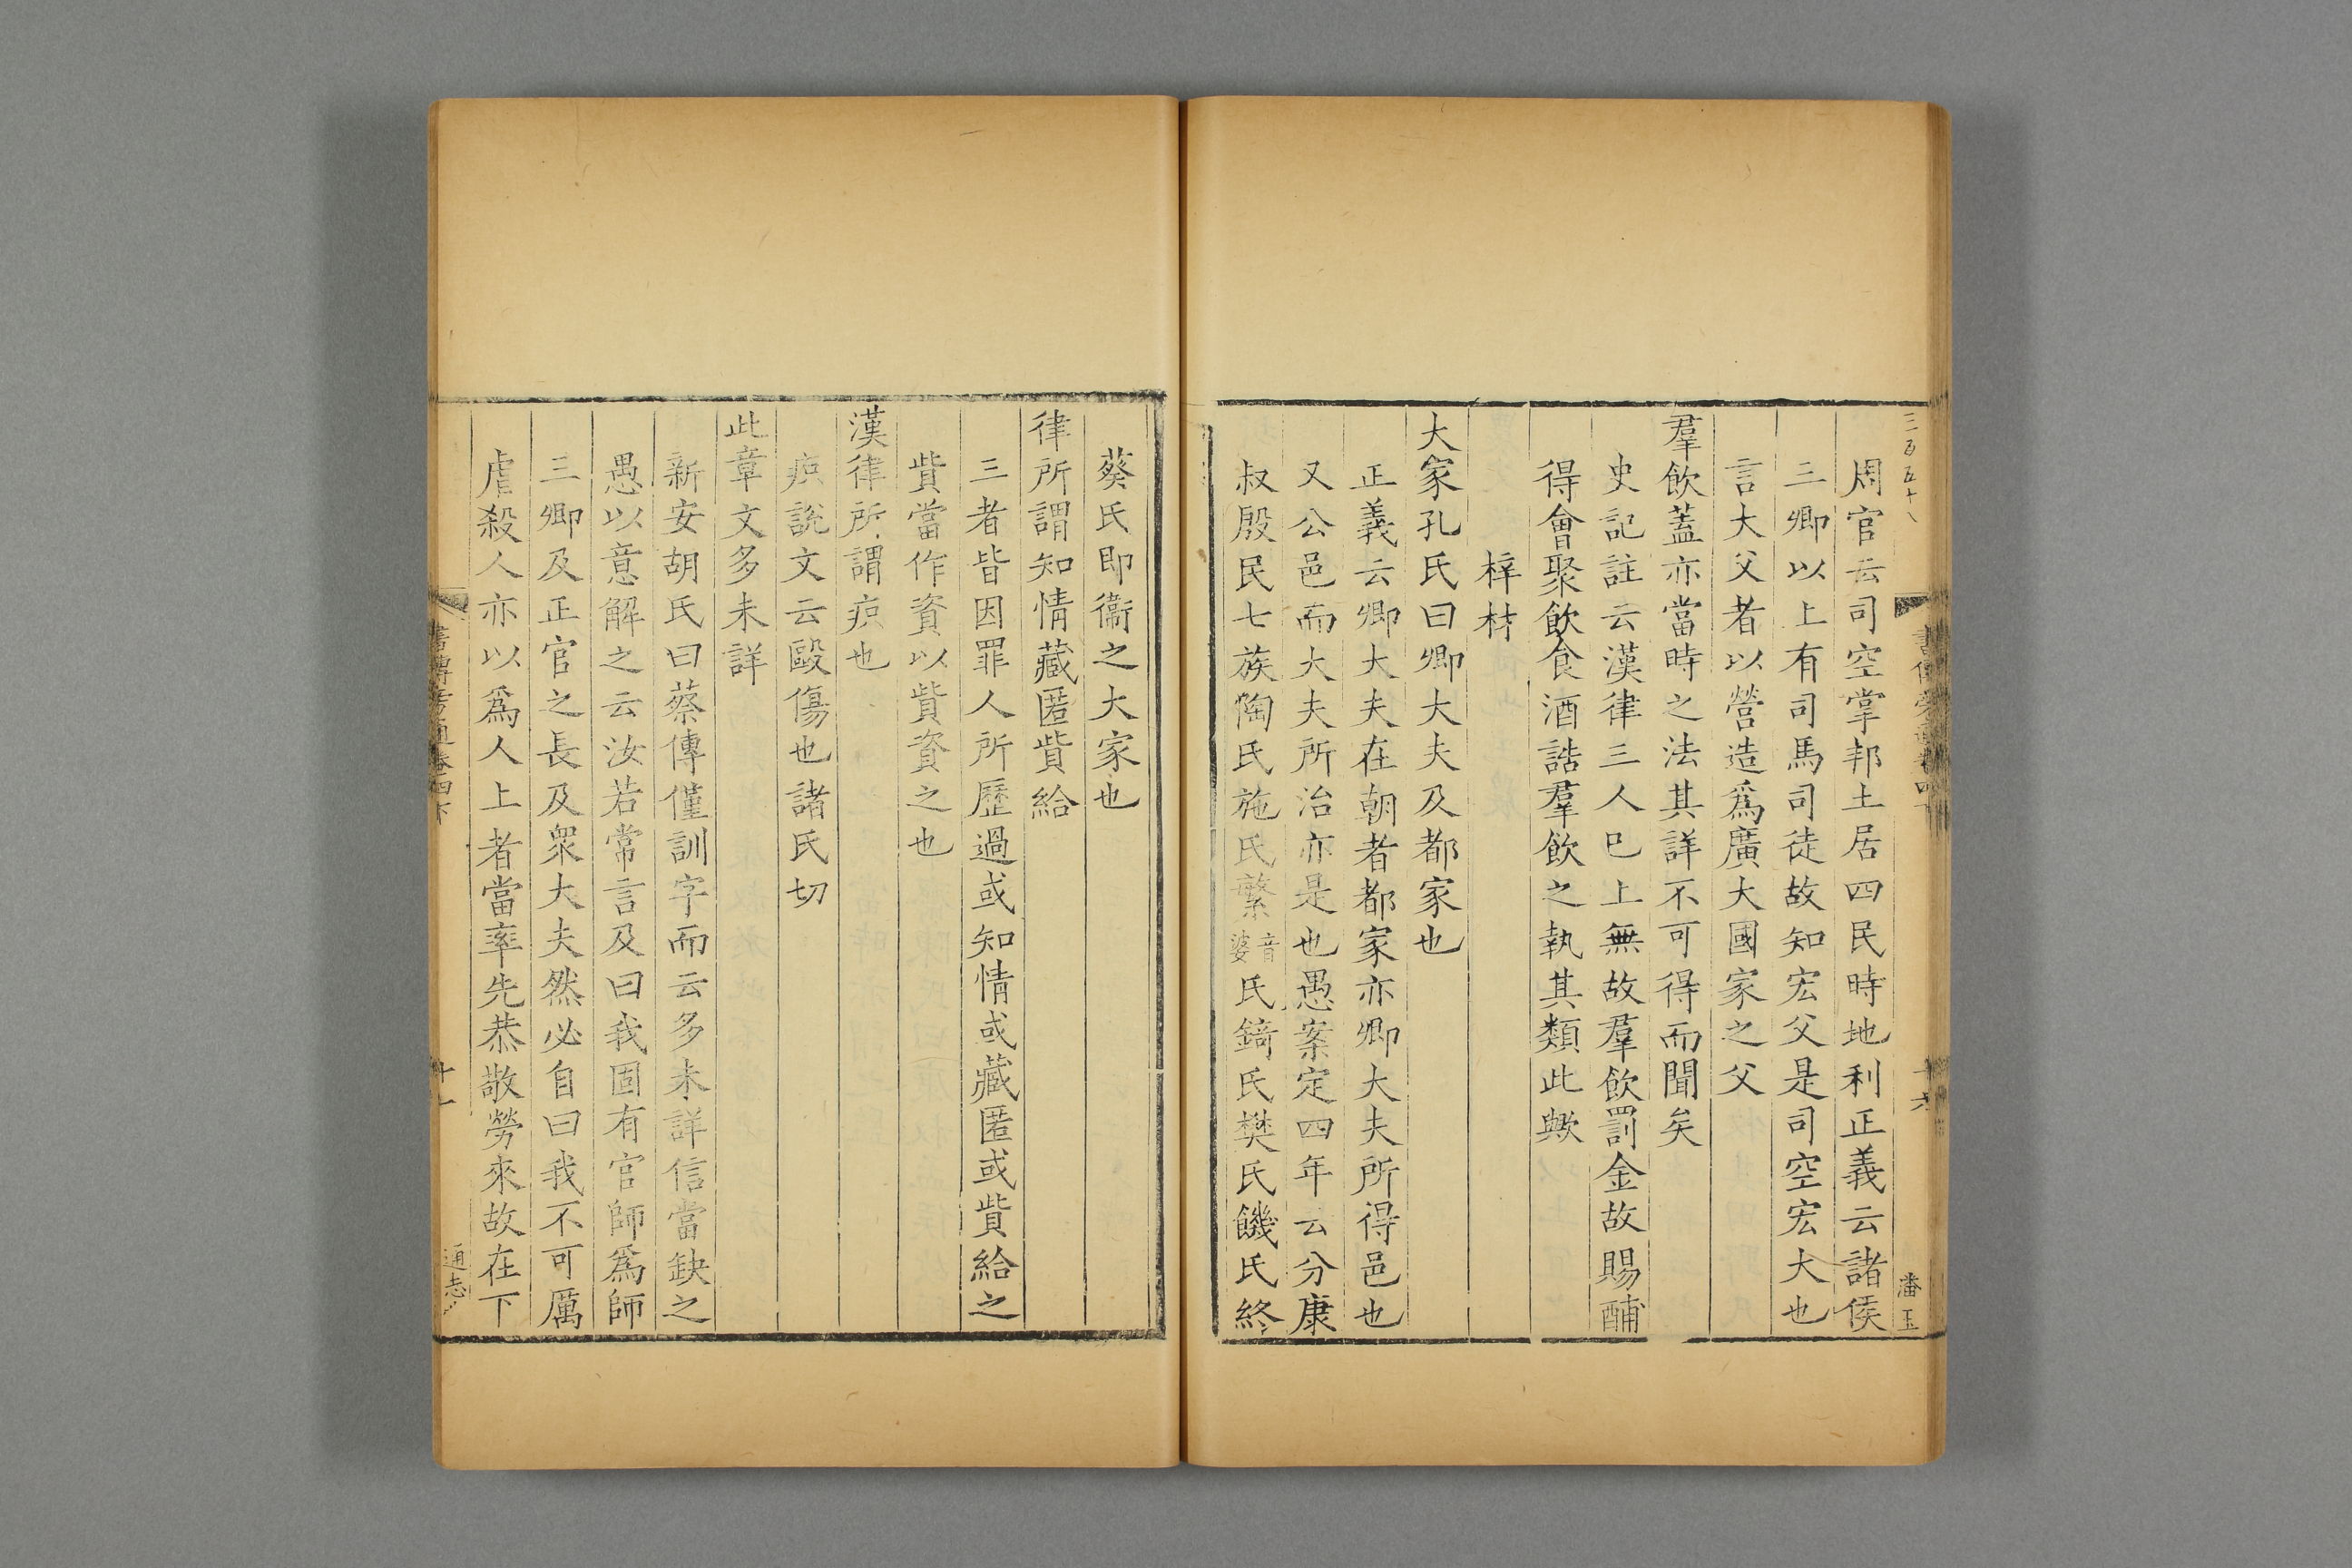 三百五十八
周官云司空掌邦土居四民時地利正義云諸侯
三卿以上有司馬司徒故知宏父是司空宏大也
言大父者以營造爲廣大國家之父
羣飲蓋亦當時之法其詳不可得而聞矣
史記註云漢律三人巳上無故羣飲罰金故賜酺
得會聚飲食酒誥羣飲之執其類此歟
梓材
大家孔氏曰卿大夫及都家也
正義云卿大夫在朝者都家亦卿大夫所得邑也
又公邑而大夫所治亦是也愚案定四年云分康
叔殷民七族陶氏施氏繁音婆氏錡氏樊氏饑氏終
潘玉
葵氏即衞之大家也
律所謂知情藏匿貲給
三者皆因罪人所歷過或知情或藏匿或貲給之
貲當作資以貲資之也
漢律所謂疻也
疻說文云毆傷也諸氏切
此章文多未詳
新安胡氏曰蔡傳僅訓字而云多未詳信當缺之
愚以意解之云汝若常言及曰我固有官師爲師
三卿及正官之長及衆大夫然必自曰我不可厲
虐殺人亦以爲人上者當率先恭敬勞來故在下
書傳旁通卷四下
十一
通志